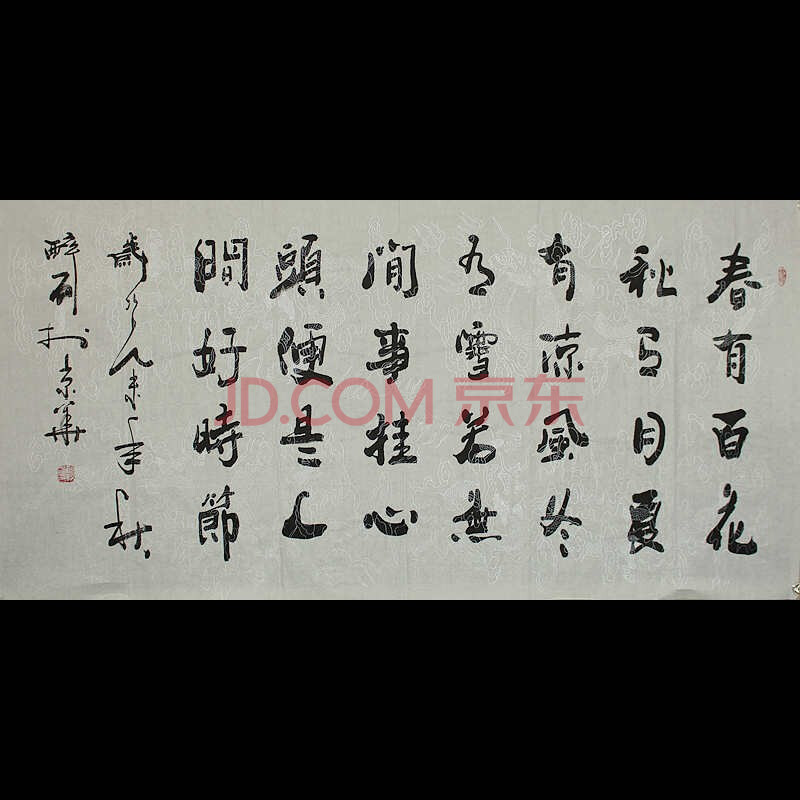 春有百花
秋有月夏
有涼風冬
有雪若無
閒事挂心
頭便是人
間好時節
歲次
年秋
醉石於京華
JD.COM 京东